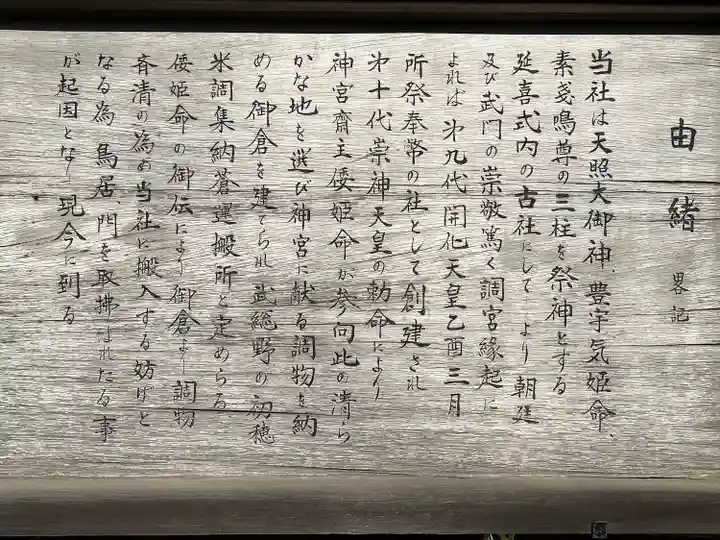 由緒 畧記
当社は天照大御神、豊宇気姫命、
素戔鳴尊の三柱を祭神とする
延喜式内の古社にして より朝廷
及び武門の崇敬篤く調宮縁起に
よれば 第九代開化天皇乙酉三月
所祭奉幣の社として創建され
第十代崇神天皇の勅命により
神宮齋主倭姫命が参向此の清ら
かな地を選び神宮に献る調物を納
める御倉を建てられ武総野の初穂
米調集納蒼運搬所と定めらる
倭姫命の御伝により御倉より調物
斉清の為め当社に搬入する妨げと
なる為鳥居、門を取拂はれたる事
が起因となり現今に到る